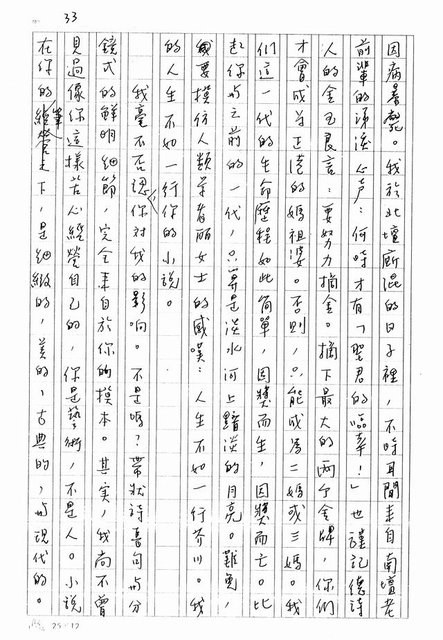 33
因病暑斃。我於北壇廝混的日子裡，不時耳聞來自南壇老
前輩的須溪心声：何時才有「聖君的臨幸！」也謹記德詩
人的金玉良言：要努力摘金。摘下最大的兩个金牌，你們
才會成为正港的媽祖婆。否則，只能成為二媽或三媽。我
們這一代的生命歷程如此简單，因獎而生，因獎而亡。比
起你与之前的一代，只算是淡水河上黯淡的月亮。難免，
我要摸仿人類学者丽女士的感嘆：人生不如一行芥川。我
的人生不如一行你的小說。
我毫不否認你对我的影响。不是嗎？帶狀詩喜句与分
鏡式的鮮明細節，完全来自於你的摸本。其实，我尚不曾
見過像你這樣苦心經營自己的，你是藝術，不是人。小說
在你的筆下，是細緻的，美的，古典的，与現代的。
25×12